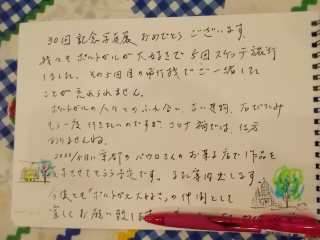 30回記念写真展 おめでとう ございます。
私も ポルトガルが大好きで 5回スケッチ旅行
しました。その5回目の旅でご一緒した
ことが 忘れられません。
ポルトガルの人々とのふれ合い 古い建物、石だたみ
もう一度 行きたいのですが、コロナ禍では、仕方
ありませんね。
京都の パウロさんのお菓子店で作品を
させてもらう予定です。またご案内します。
今後とも"ポルトガル大好き"の仲間として
宜しくお願い致します